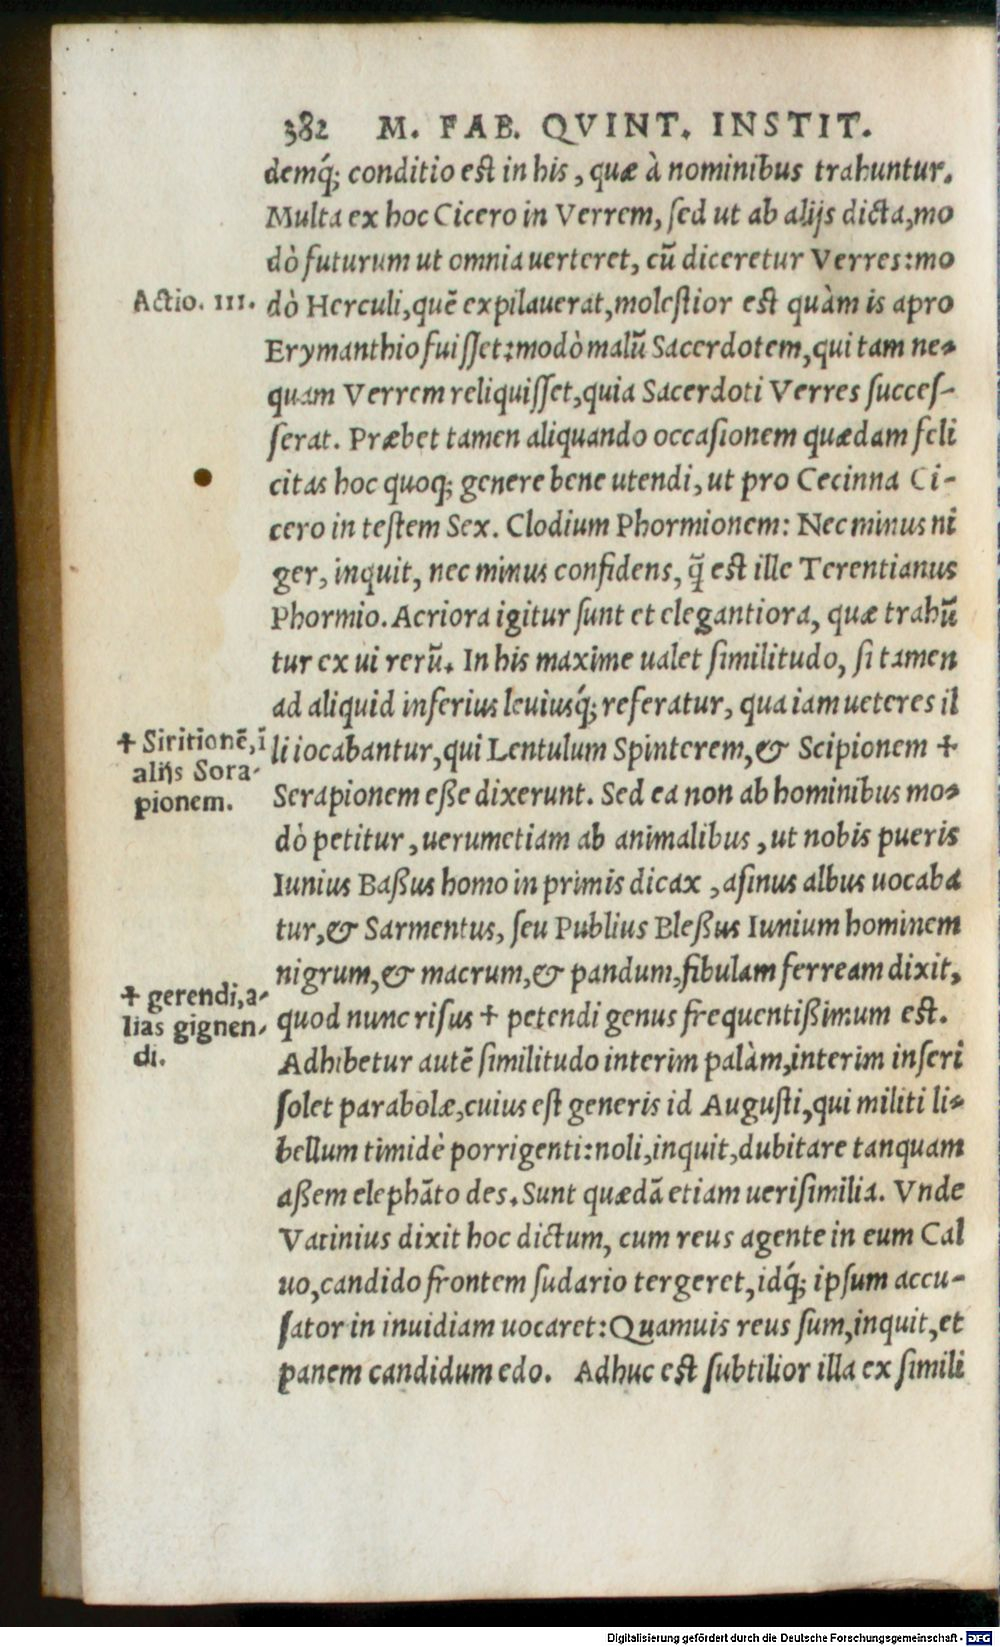 382 M. FAB. QVINT. INSTIT.
demq́; conditio est in his, quæ à nominibus trahuntur.
Multa ex hoc Cicero in Verrem, sed ut ab alijs dicta, mo
dò futurum ut omnia uerteret, cū diceretur Verres: mo
Actio. III.
dò Herculi, quē expilauerat, molestior est quàm is apro
Erymanthio fuisset: modò malū Sacerdotem, qui tam ne-
quam Verrem reliquisset, quia Sacerdoti Verres succes-
serat. Præbet tamen aliquando occasionem quædam feli
citas hoc quoq; genere bene utendi, ut pro Cecinna Ci-
cero in testem Sex. Clodium Phormionem: Nec minus ni
ger, inquit, nec minus confidens, q̃ est ille Terentianus
Phormio. Acriora igitur sunt et elegantiora, quæ trahū
tur ex ui rerū. In his maxime ualet similitudo, si tamen
ad aliquid inferius leuiusq́; referatur, qua iam ueteres il
li iocabantur, qui Lentulum Spinterem, & Scipionem ✝
✝ Siritionē, ī
alijs Sora-
pionem.
Serapionem eße dixerunt. Sed ea non ab hominibus mo-
dò petitur, uerumetiam ab animalibus, ut nobis pueris
Iunius Baßus homo in primis dicax, asinus albus uocaba
tur, & Sarmentus, seu Publius Bleßus Iunium hominem
nigrum, & macrum, & pandum, fibulam ferream dixit,
quod nunc risus ✝ petendi genus frequentißimum est.
✝ gerendi, a-
lias gignen-
di.
Adhibetur autē similitudo interim palàm, interim inseri
solet parabolæ, cuius est generis id Augusti, qui militi li-
bellum timidè porrigenti: noli, inquit, dubitare tanquam
aßem elephāto des. Sunt quædā etiam uerisimilia. Vnde
Vatinius dixit hoc dictum, cum reus agente in eum Cal
uo, candido frontem sudario tergeret, idq́; ipsum accu-
sator in inuidiam uocaret: Quamuis reus sum, inquit, et
panem candidum edo. Adhuc est subtilior illa ex simili
Digitalisierung gefördert durch die Deutsche Forschungsgemeinschaft - DFG